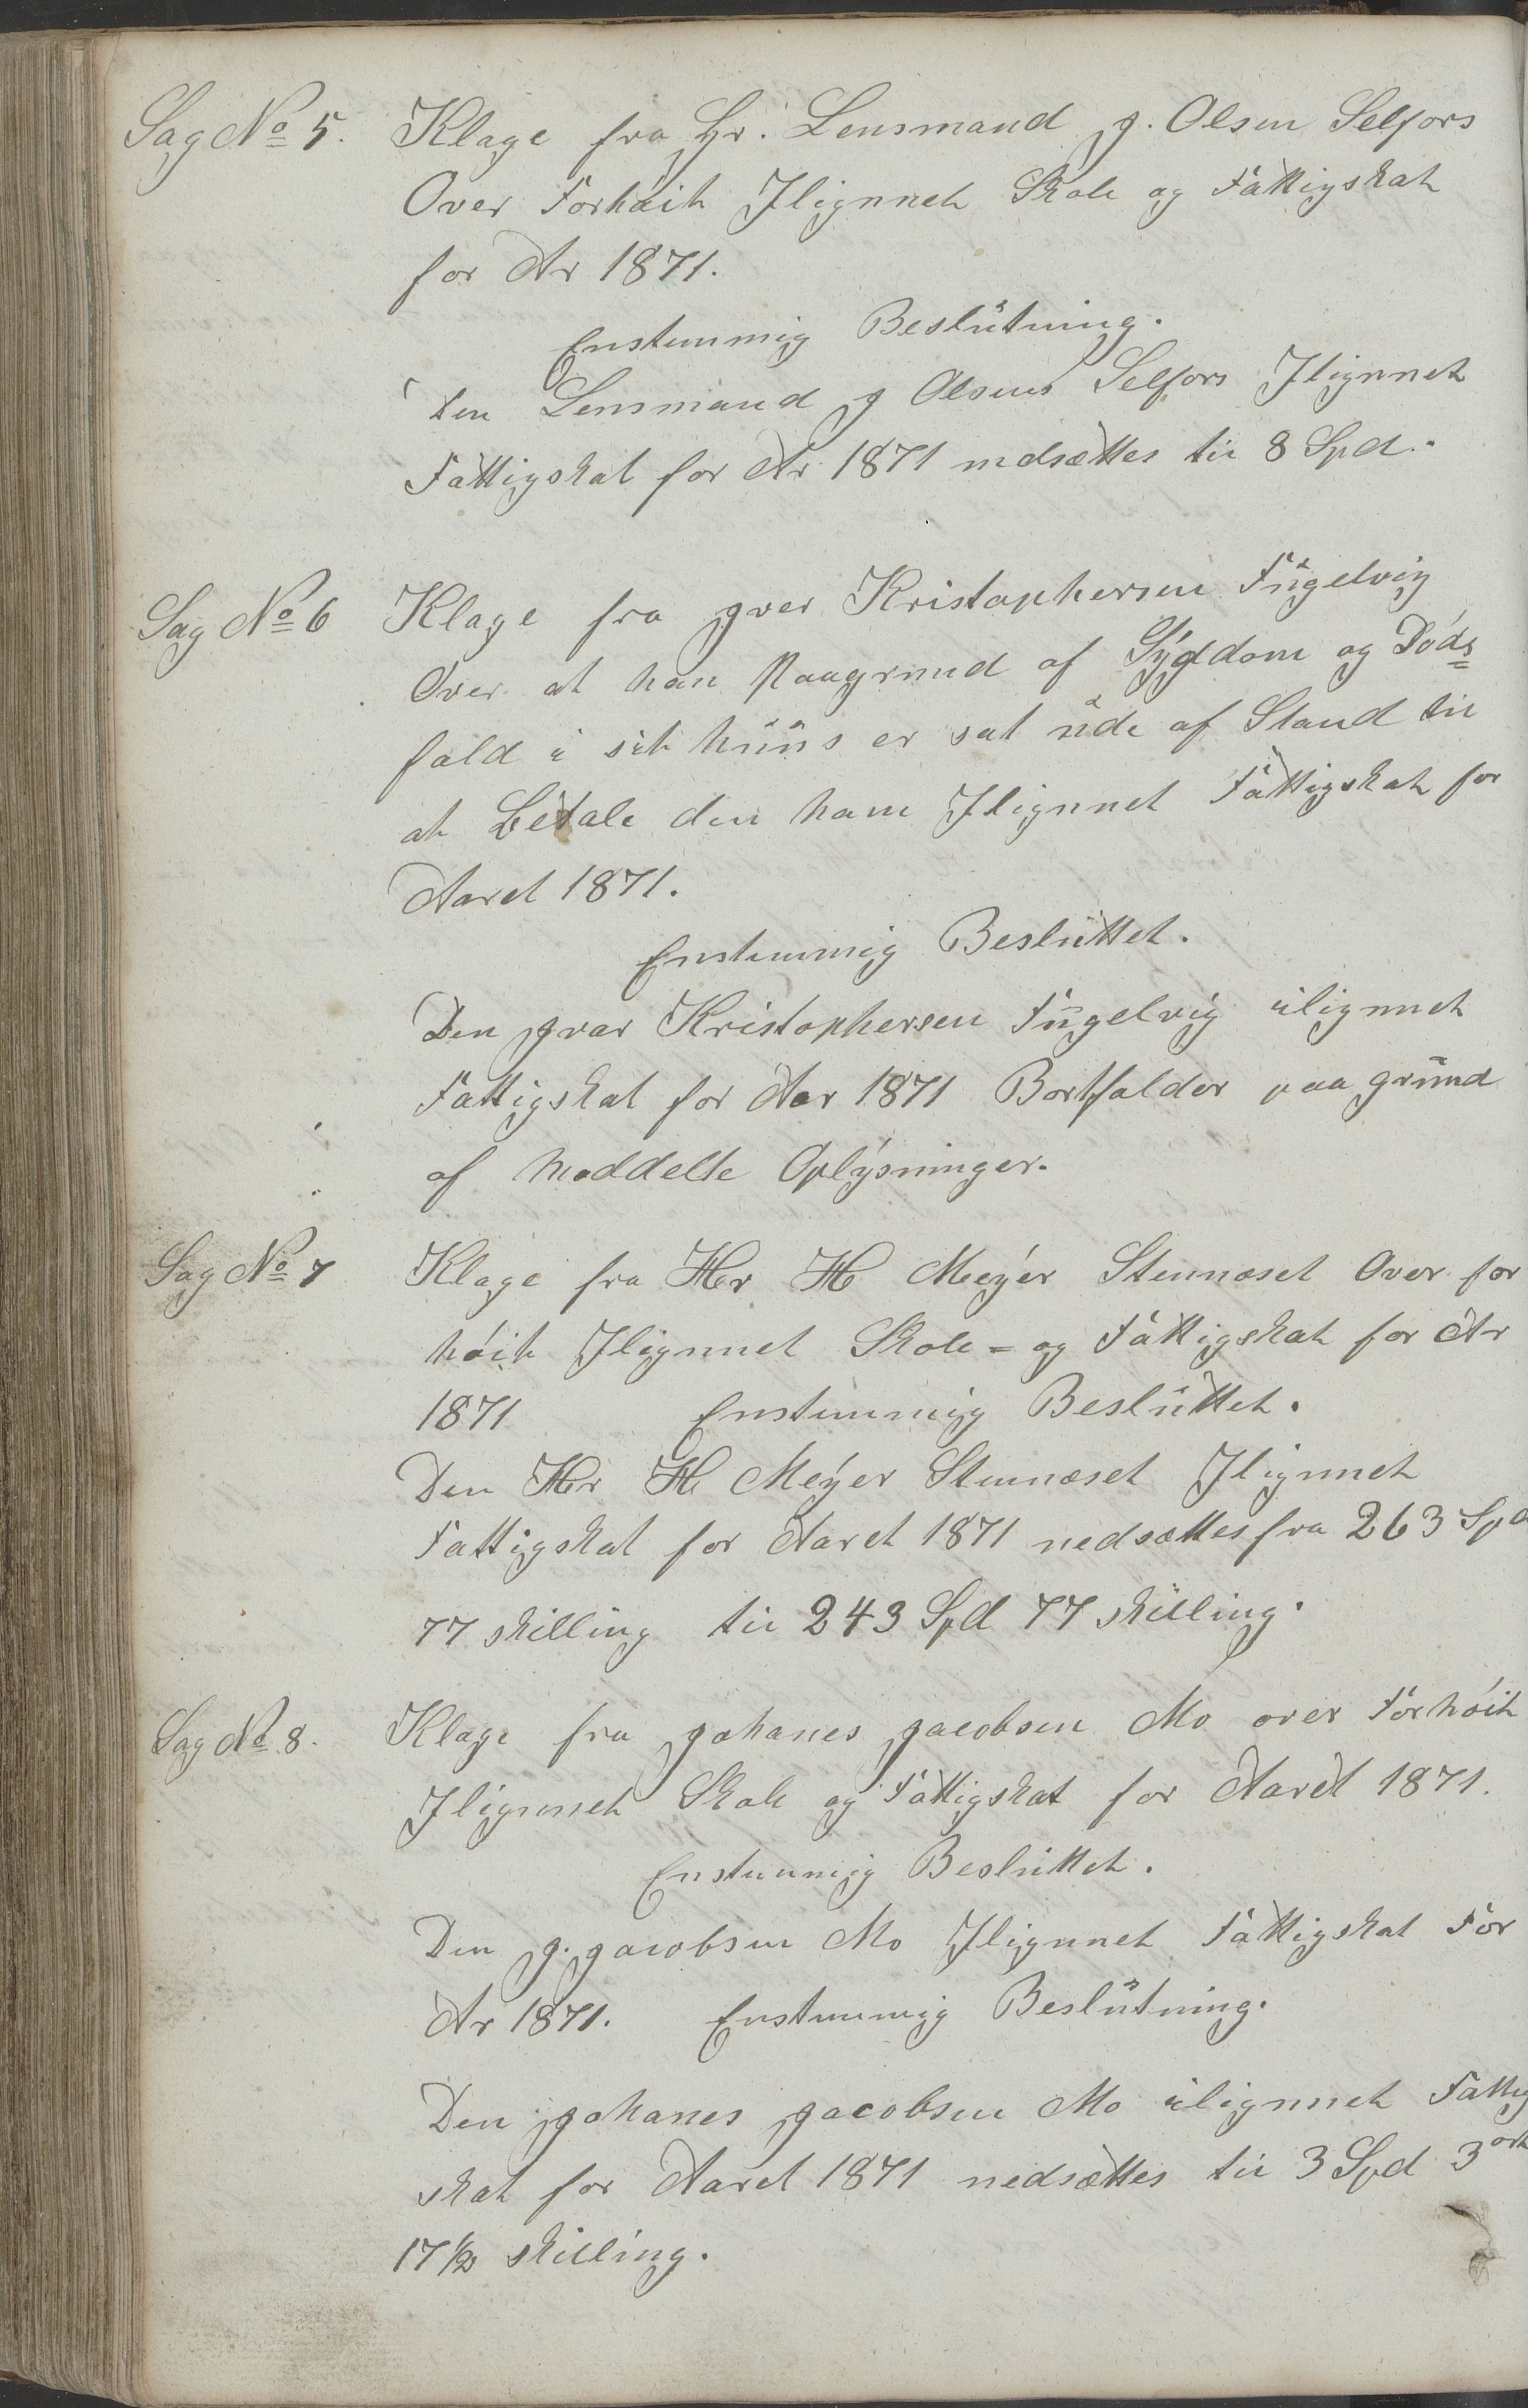 Sag No 5. Klage fra Hr. Lensmand J. Olsen Selfors
Over Forhöit Ilignnet Skole og Fattigskat
for Ar 1871.
Enstemmig Beslutning.
Den Lensmand J Olsens Selfors Ilignnet
Fattigskat for Ar 1871 nedsættes til 8 Spd.
Sag No 6 Klage fra Iver Kristophersen Fugelvig
Over at han Paagrund af Sygdom og Döds=
fald i sit huus er sat ude af Stand til
at Betale den ham Ilignnet Fattigskat for
Aaret 1871.
Enstemmig Besluttet.
Den Ivar Kristophersen Fugelvig ilignnet
Fattigskat for Aar 1871 Bortfalder paa grund
af Meddelte Oplysninger.
Sag No 7 Klage fra Hr H Meyer Stennæset Over for
höit Ilignnet Skole= og Fattigskat for Ar
1871 Enstemmig Besluttet.
Den Hr H Meyer Stennæset Ilignnet
Fattigskat for Aaret 1871 nedsættes fra 263 Spd
77 skilling til 243 Spd 77 skilling.
Sag No 8. Klage fra Johanes Jacobsen Mo over Forhöit
Ilignnet Skole og Fattigskat for Aaret 1871.
Enstemmig Besluttet.
Den J. Jacobsen Mo Ilignnet Fattigskat For
Ar 1871. Enstemmig Beslutning.
Den Johanes Jacobsen Mo ilignnet Fattig
skat for Aaret 1871 nedsættes til 3 Spd 3 ort
17 1/2 skilling.